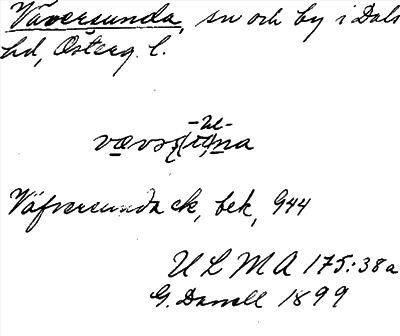 Väversunda, sn och by i Dals
hd, Österg. l.
-ɯ-
Väfversunda ek, bek, 944
ULMA 175:38a
G. Danell 1899